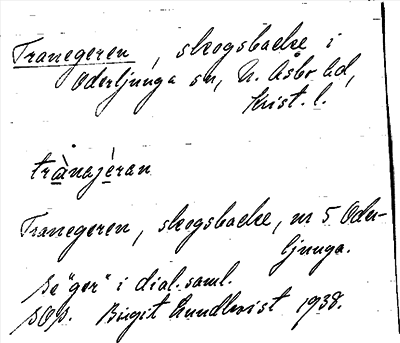 Tranegeren, skogsbacke i
Oderljunga sn, N. Åsbo hd,
Krist. l.
trànajèran
Tranegeren, skogsbacke, nr 5 Oder-
ljunga.
Se "ger" i dial. saml.
Birgit Lundkvist 1938.